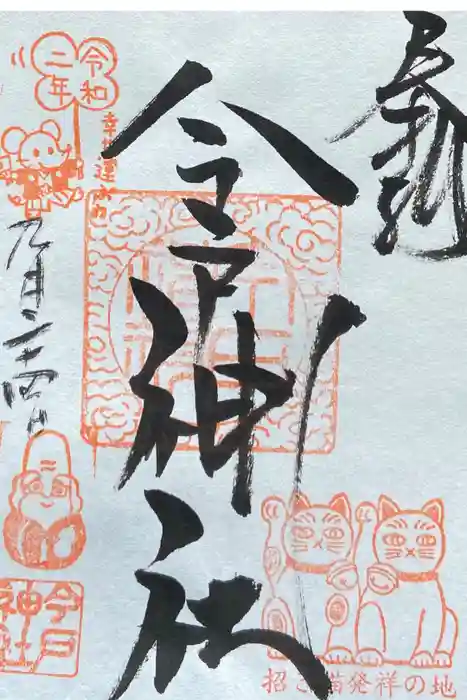 奉拝
今戸神社
招き猫発祥の地
令和
二年
幸せ運ぶ
九月二十四日
今戸
神社